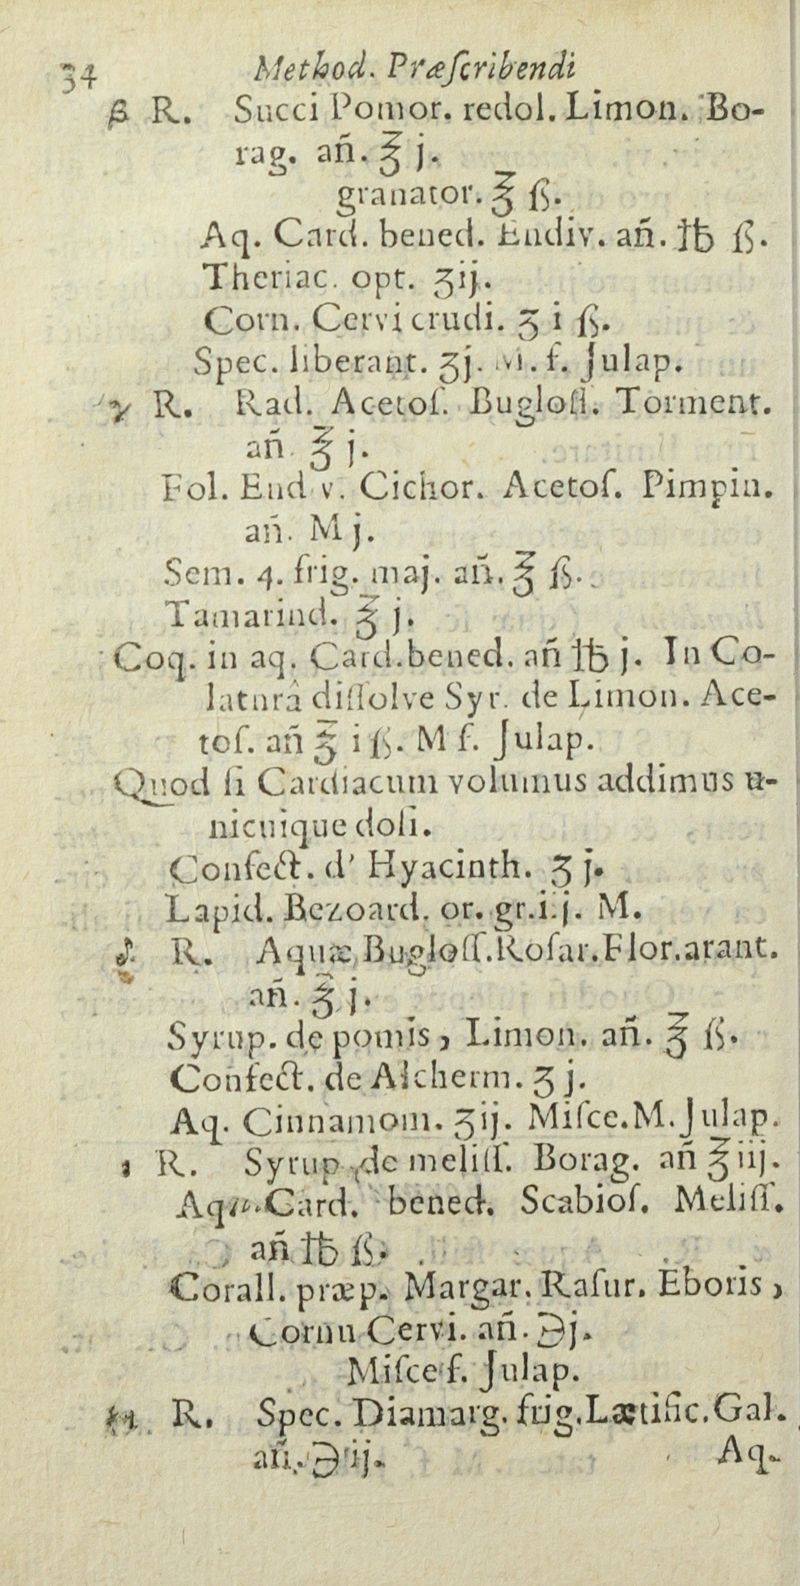 34 Method. Præſcribendi
β R. Succi Pomor. redol. Limon. Bo-
rag. an̄. ℥ j.
granator. ℥ ß.
Aq. Card. bened. Endiv. an̄. ℔ ß.
Theriac. opt. ʒij.
Corn. Cervi crudi. ʒ i ß.
Spec. liberant. ʒj. M. f. Julap.
γ R. Rad. Acetoſ. Bugloſſ. Torment.
an̄ ℥ j.
Fol. Endiv. Cichor. Acetoſ. Pimpin.
an̄. M j.
Sem. 4. frig. maj. an̄. ℥ ß.
Tamarind. ℥ j.
Coq. in aq. Card.bened. an̄ ℔ j. In Co-
laturâ diſſolve Syr. de Limon. Ace-
toſ. an̄ ℥ i ß. M f. Julap.
Quod ſi Cardiacum volumus addimus u-
nicuique doſi.
Confect. d' Hyacinth. ʒ j.
Lapid. Bezoard. or. gr.iij. M.
δ R. Aquæ Bugloſſ.Roſar.Flor.arant.
an̄. ℥ j.
Syrup. de pomis, Limon. an̄. ℥ ß.
Confect. de Alcherm. ʒ j.
Aq. Cinnamom. ʒij. Miſce.M.Julap.
R. Syrup de meliſſ. Borag. an̄ ℥iij.
Aq. Card. bened. Scabioſ. Meliſſ.
an̄ ℔ ß.
Corall. præp. Margar. Raſur. Eboris,
Cornu Cervi. an̄. ℈j.
Miſce f. Julap.
R. Spec. Diamarg. frig.Lætific.Gal.
an̄. ℈ ij. Aq.